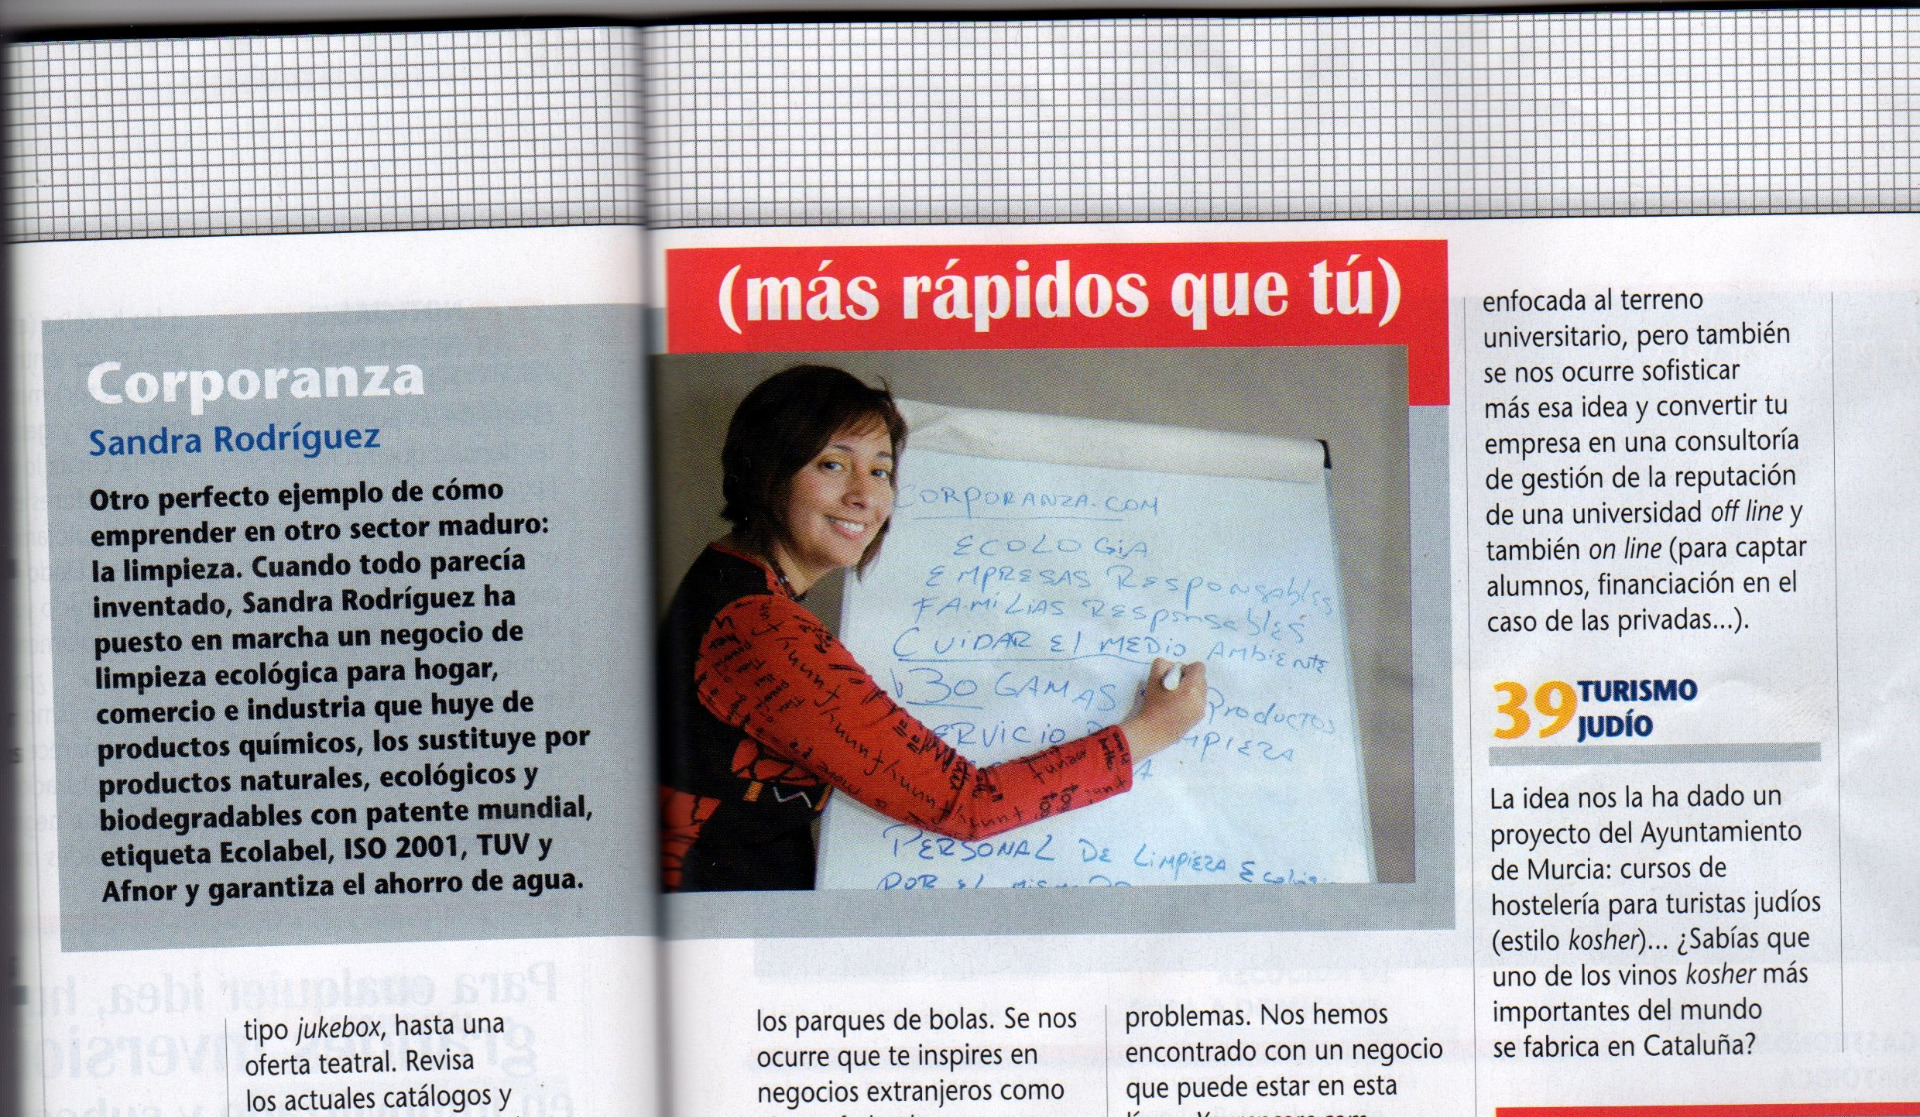 (más rápidos que tú)
Corporanza
Sandra Rodríguez
Otro perfecto ejemplo de cómo
emprender en otro sector maduro:
la limpieza. Cuando todo parecía
inventado, Sandra Rodríguez ha
puesto en marcha un negocio de
limpieza ecológica para hogar,
comercio e industria que huye de
productos químicos, los sustituye por
productos naturales, ecológicos y
biodegradables con patente mundial,
etiqueta Ecolabel, ISO 2001, TUV y
Afnor y garantiza el ahorro de agua.
CORPORANZA.COM
ECOLOGIA
EMPRESAS RESPONSABLES
FAMILIAS RESPONSABLES
CUIDAR El MEDIO AMBIENTE
30 GAMAS PRODUCTOS
SERVICIO
PERSONAL DE LIMPIEZA
POR EL MISMO
tipo jukebox, hasta una
oferta teatral. Revisa
los actuales catálogos y
los parques de bolas. Se nos
ocurre que te inspires en
negocios extranjeros como
problemas. Nos hemos
encontrado con un negocio
que puede estar en esta
enfocada al terreno
universitario, pero también
se nos ocurre sofisticar
más esa idea y convertir tu
empresa en una consultoría
de gestión de la reputación
de una universidad off line y
también on line (para captar
alumnos, financiación en el
caso de las privadas...).
39 TURISMO
JUDÍO
La idea nos la ha dado un
proyecto del Ayuntamiento
de Murcia: cursos de
hostelería para turistas judíos
(estilo kosher)... ¿Sabías que
uno de los vinos kosher más
importantes del mundo
se fabrica en Cataluña?